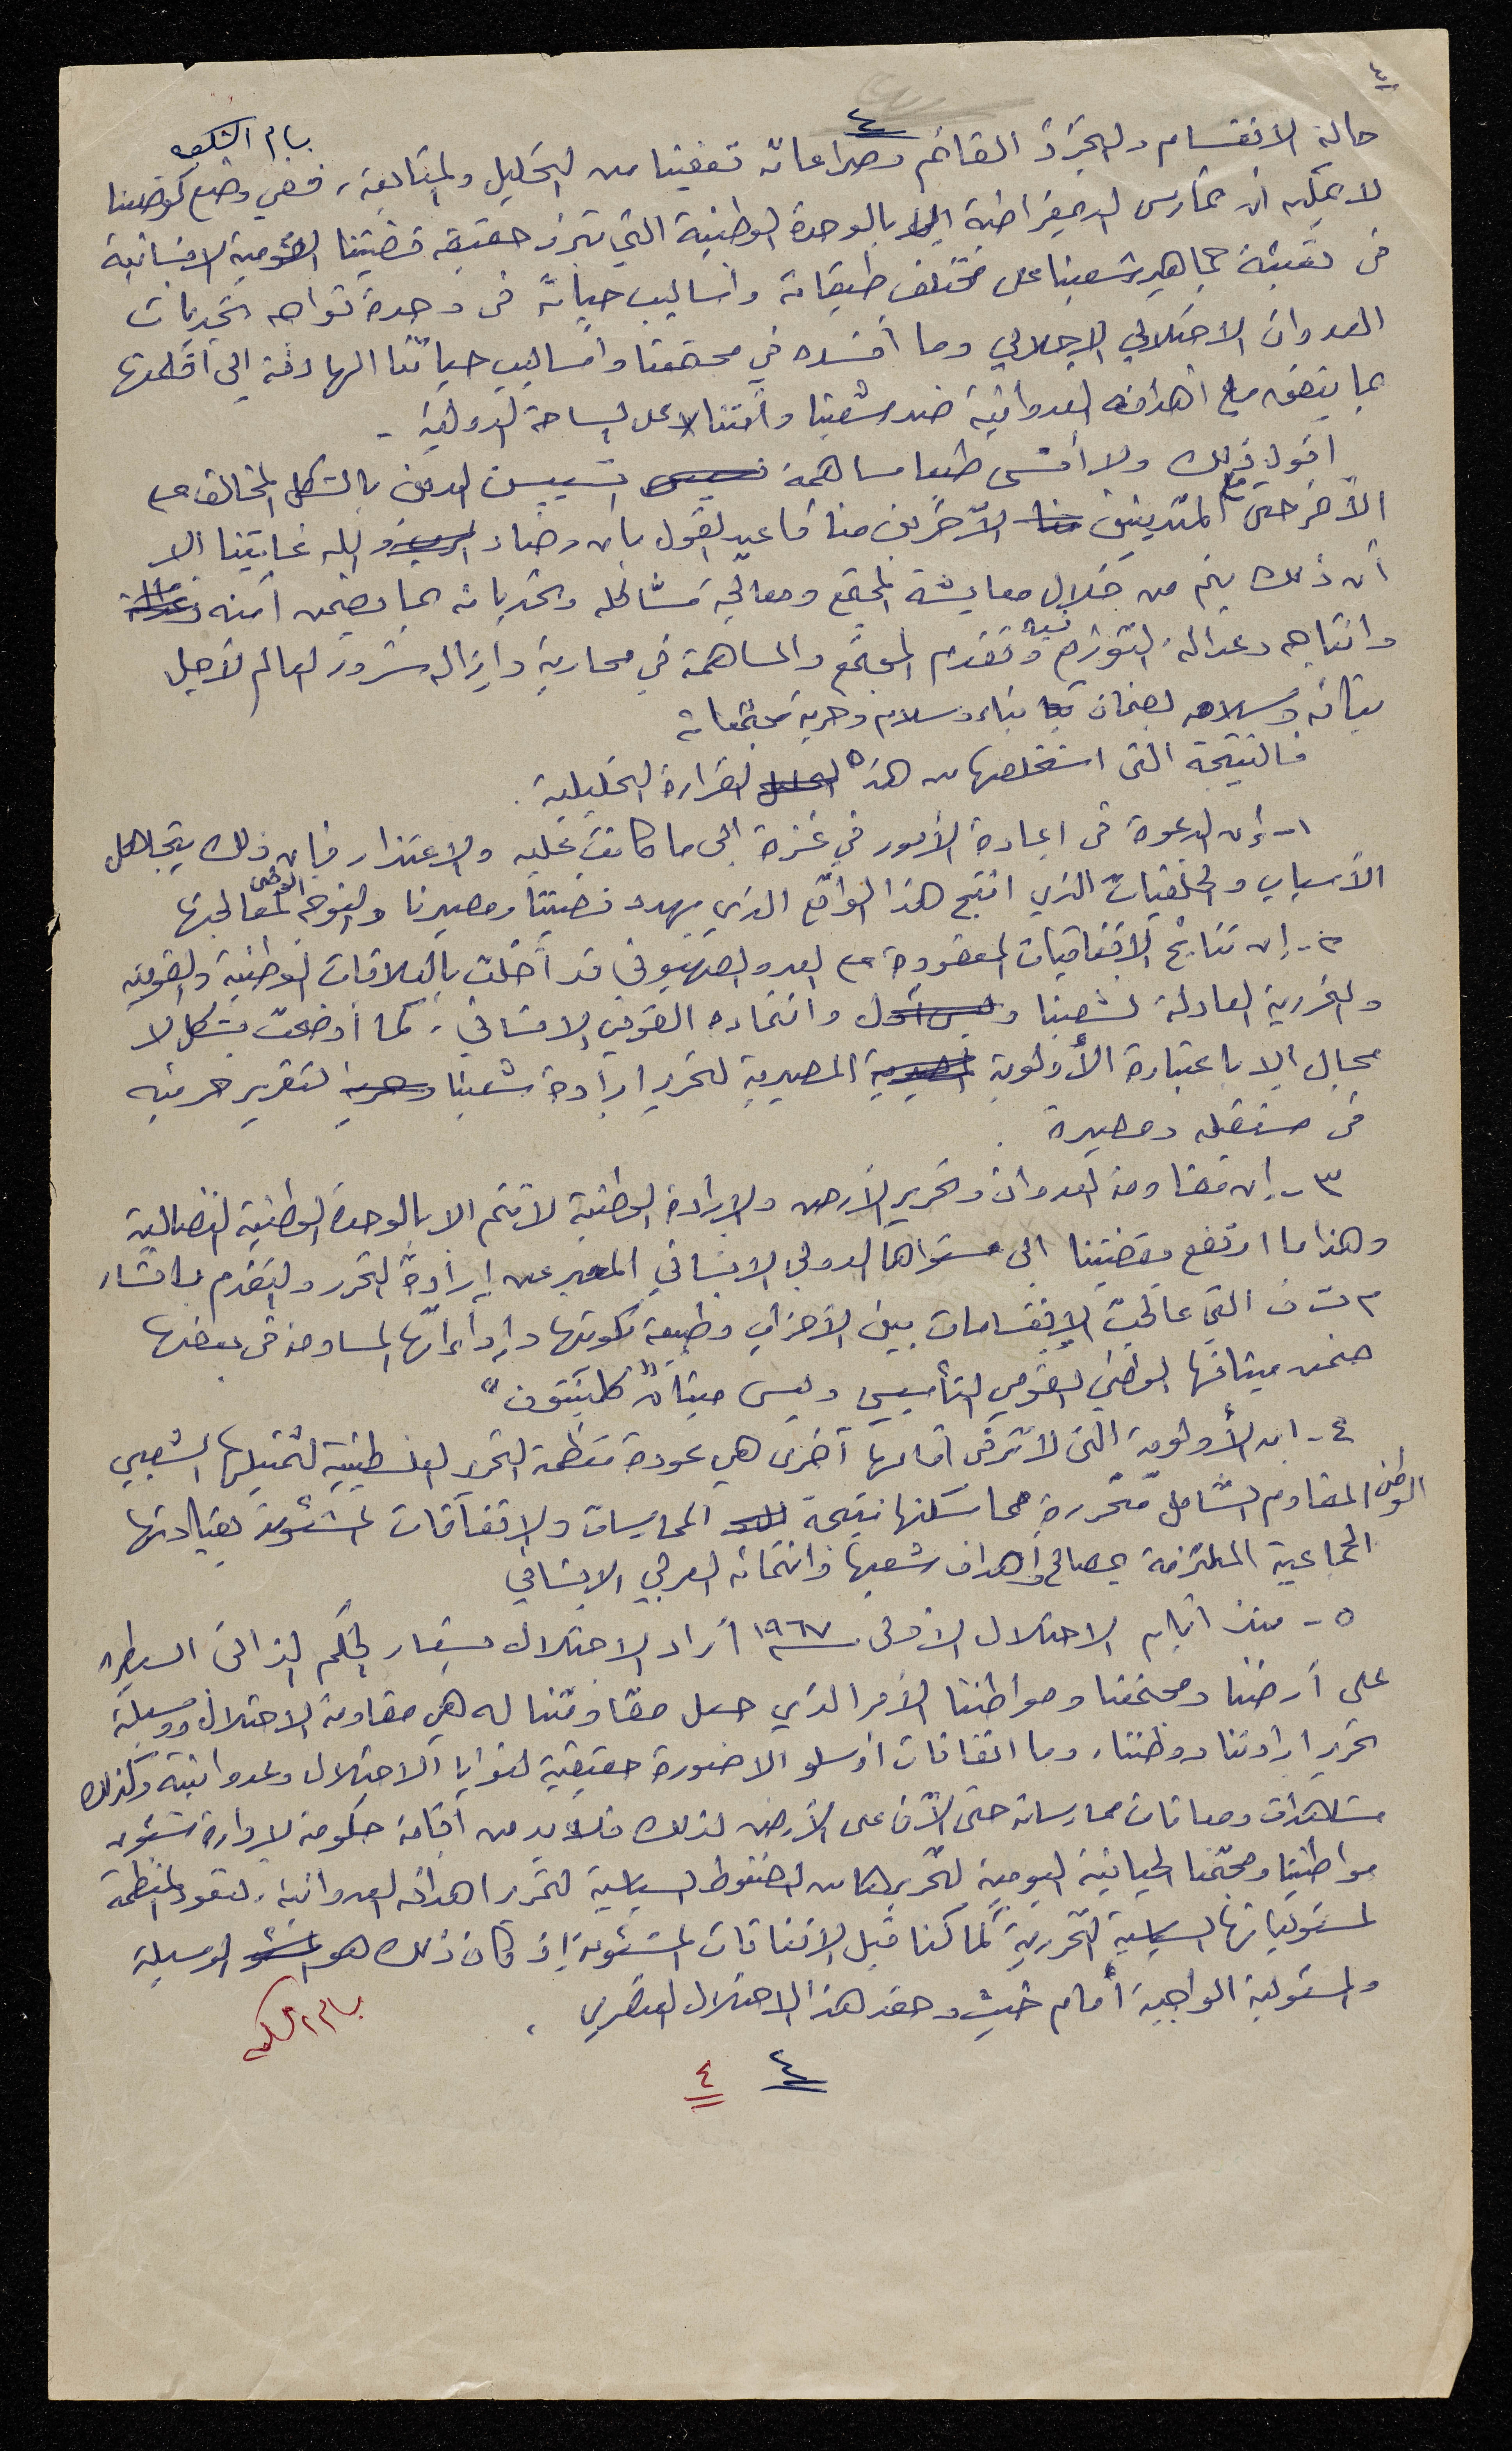 ٤
٤
بسام الشكعه
حالة الانقسام والتجزؤ القائم وصراعاته تعفينا من التحليل والمتابعة، ففي وضع كوضعنا
لا يمكن أن نمارس الديمقراطية إلا بالوحدة الوطنية التي تبرز حقيقة قضيتنا القومية الانسانية
في تعبئة جماهير شعبنا على مختلف طبقاته وأساليب حياته في وحدة تواجه تحديات
العدوان الاحتلالي الاحلالي وما أفسده في مجتمعنا وأساليب حياتنا الهادفة الى أقلمتها
بما يتفق مع أهدافه العدوانية ضد شعبنا وأمتنا لا على الساحة الدولية -
أقول ذلك ولا أنسى طبعا مساهمة تسييس الدين بالشكل المخالف مع
الآخر حتى مع المتدينين الآخرين منا فأعيد القول بأن رضاء الله غايتنا الا
أن ذلك يتم من خلال معايشة المجتمع ومعالجة مشاكله وتحدياته بما يضمن أمنه
وانتاجه وعدالة التوزيع فيه وتقدم المجتمع والمساهمة في محاربة وإزالة شرور العالم لأجل
بنائه وسلامه لضمان بناء وسلام وحرية مجتمعاته
فالنتيجة التى استخلصها من هذه القراءة التحليلية.
١ - إن الدعوة في اعادة الأمور في غزة الى ما كانت عليه والاعتذار فإن ذلك يتجاهل
الأسباب والخلفيات الذي انتج هذا الواقع الذي يهدد قضيتنا ومصيرنا والتوجه الوطني لمعالجتها
٢ - إن نتائج الاتفاقيات المعقودة مع العدو الصهيوني قد أخلت بالعلاقات الوطنية والقومية
والتحررية العادلة لشعبنا وانتماءه القومي الانساني، كما أوضحت بشكل لا
مجال إلا باعتباره الأولوية المصيرية لتحرر ارادة شعبنا لتقرير حريته
في مستقبله ومصيره.
٣ - إن مقاومة العدوان وتحرير الأرض والإرادة الوطنية لا تتم الا بالوحدة الوطنية النضالية
وهذا ما ارتفع بقضيتنا الى مستواها الدولي الانساني المعبر عن إرادة التحرر والتقدم بانشاء
م ت ف التي عالجت الانقسامات بين الأحزاب وطبيعة تكوينها وإداءاتها المساومة في بعضها
ضمن ميثاقها الوطني القومي التأسيسي وليس ميثاق "كلينتون"
٤ - ان الأولوية التي لا ترقى أمامها أخرى هي عودة منظمة التحرير الفلسطينية لتمثيلها الشعبي
الوطني المقاوم الشامل متحررة مما سكنها نتيجة الممارسات والاتفاقات المشئومة بقيادتها
الجماعية الملتزمة بمصالح وأهداف شعبها وانتمائه العربي الانساني
٥ - منذ أيام الاحتلال الأولى سنة ١٩٦٧ أراد الاحتلال بشعار الحكم الذاتي السيطرة
على أرضنا ومجتمعنا ومواطننا الأمر الذي جعل مقاومتنا له هي مقاومة الاحتلال ووسيلة
تحرير ارادتنا ووطننا، وما اتفاقات أوسلو الا صورة حقيقية لنوايا الاحتلال وعدوانيته وكذلك
مشاهدات ومعانات ممارساته حتى الآن على الأرض لذلك فلا بد من أقامة حكومة لإدارة شئون
مواطنينا ومجتمعنا الحياتية اليومية لتحريرهما من الضغوط السياسية لتمرير اهدافه العدوانية، لتعود المنظمة
لمسئولياتها السياسية التحررية كما كنا قبل الاتفاقات المشئومة إذ كان ذلك هو الوسيلة
والمسئولية الواجبة أمام خبث وحقد هذا الاحتلال العنصري.
بسام الشكعه
٤ ٤